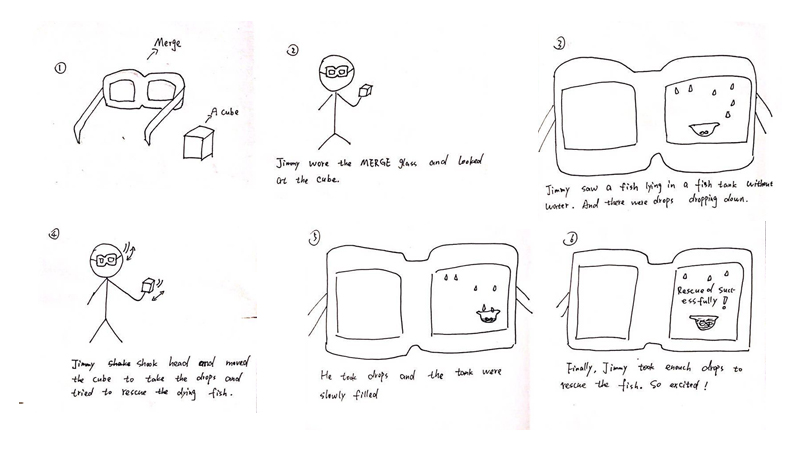 ①
Merge
A cube
②
Jimmy wore the MERGE glass and looked
at the cube.
3
Jimmy saw a fish lying in a fish tank without
water. And there were drops dropping down.
④
Jimmy shake shook head and moved
the cube to take the drops and
tried to rescue the dying fish.
5
He took drops and the tank were
slowly filled
6
Rescued succ-
essfully!
Finally, Jimmy took enough drops to
rescue the fish. So excited!